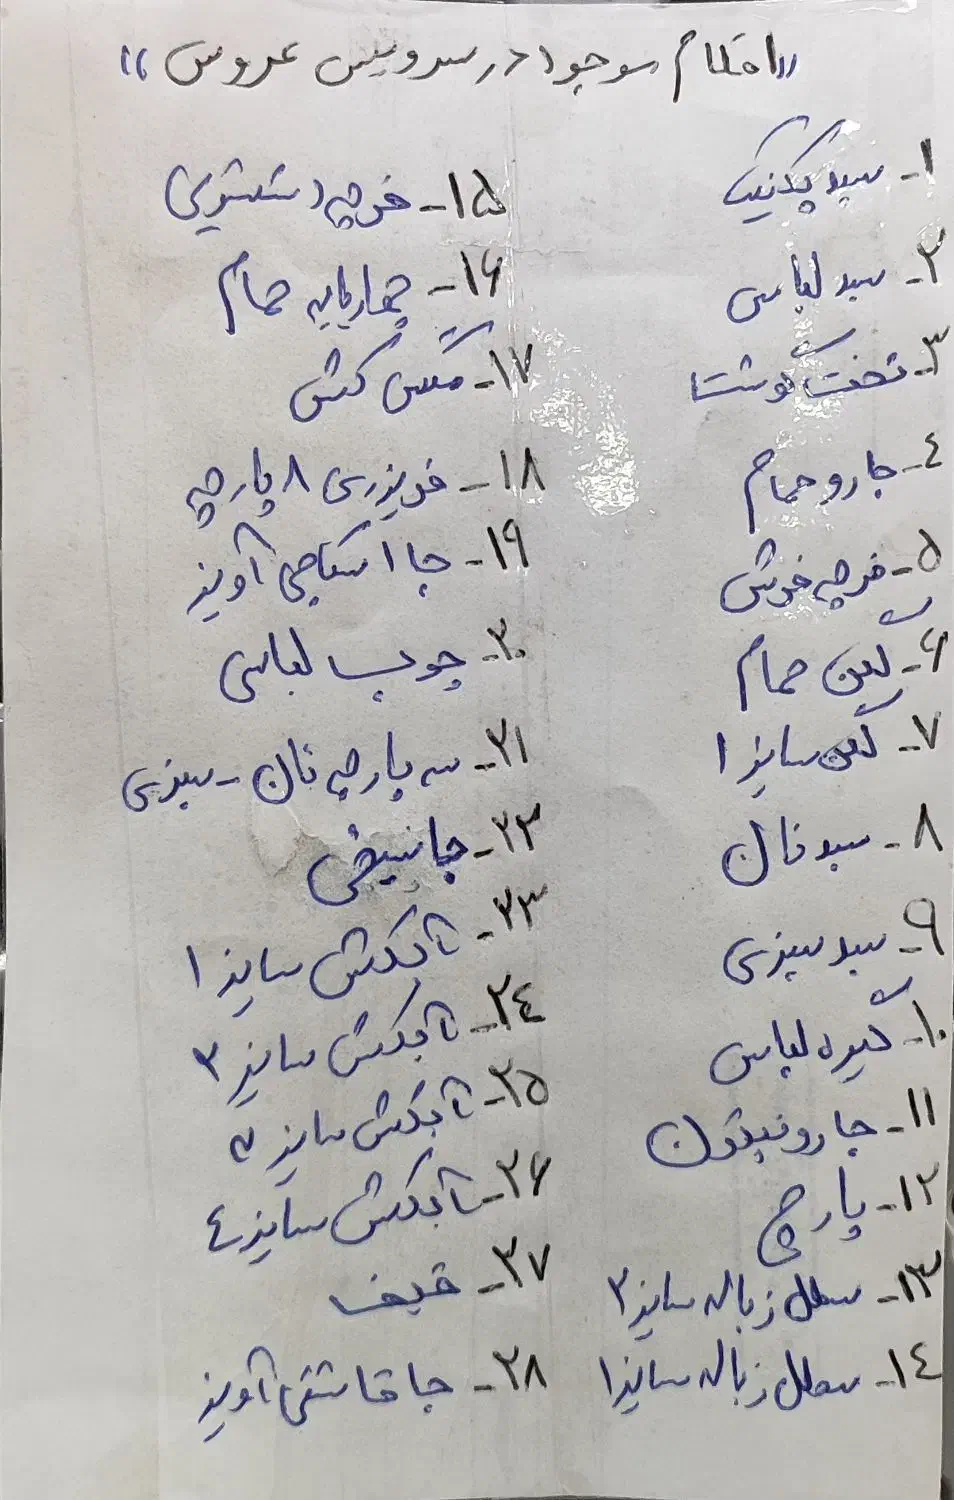 "اقلام موجود در سرویس عروس"
۱- سبد پکنیک
۲- سبد لباس
۳- تخت گوشت
٤- جارو حمام
۵- فرچه فرش
۶- لگن حمام
۷- لگن سایز ۱
۸- سبد نان
۹- سبد سبزی
۱۰- گیره لباس
۱۱- جارو نپتون
۱۲- پارچ
۱۳- سطل زباله سایز ۲
۱٤- سطل زباله سایز ۱
۱۵- فرچه دستشویی
۱۶- چهارپایه حمام
۱۷- مگس کش
۱۸- فریزری ۸ پارچه
۱۹- جا اسکاچی آویز
۲۰- چوب لباسی
۲۱- سه پارچه نان - سبزی
۲۲- جا سیخی
۲۳- آبکش سایز ۱
۲٤- آبکش سایز ۲
۲۵- آبکش سایز ۳
۲۶- آبکش سایز ٤
۲۷- قیف
۲۸- جا قاشقی آویز